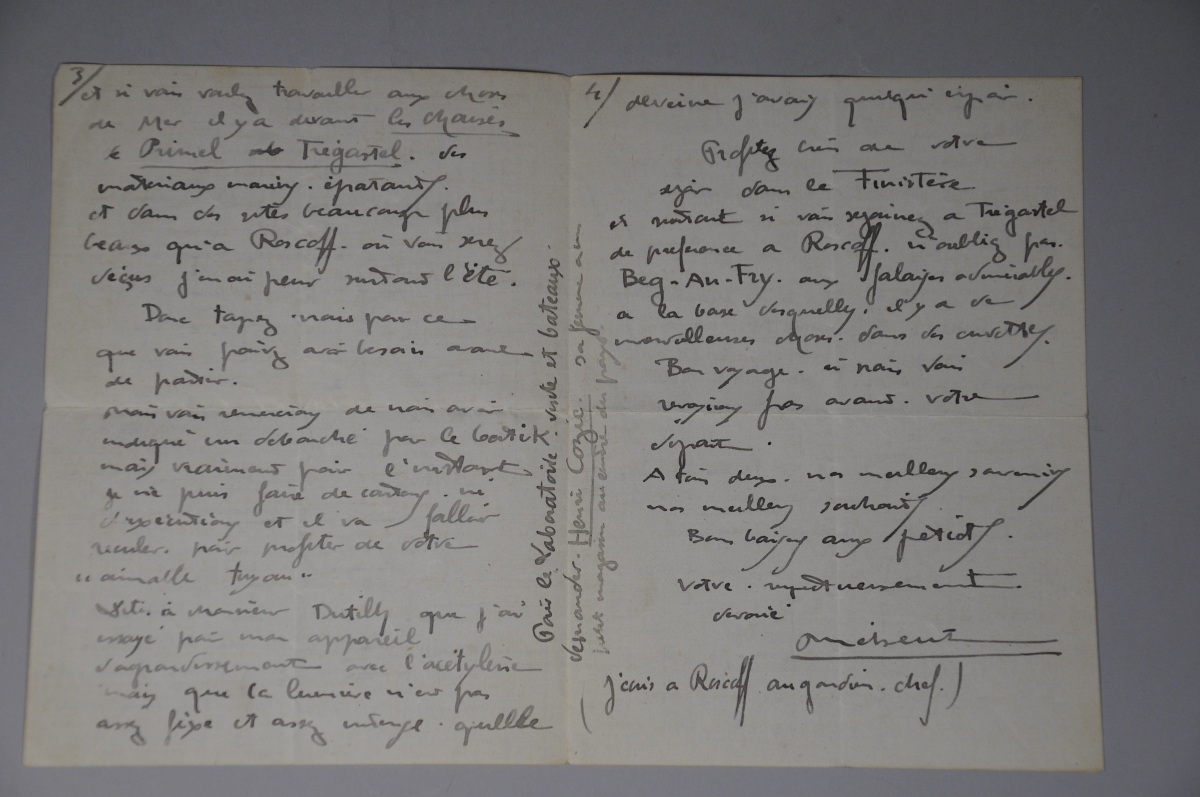 3/
et si vous voulez travailler aux choses
de Mer il y a devant les chaises
de Primel Trégastel. des
matériaux marins. épatants.
et dans des sites beaucoup plus
beaux qu'a Roscoff. où vous serez
déçues j'en ai peur surtout l'Été.
Donc tapez nous pour ce
que vous pouvez avoir besoin avant
de partir.
nous vous remercions de nous avoir
indiqué un débouché pour le batik
mais vraiment pour l'instant
je ne puis faire de cartons. ni
d'exécutions et il va falloir
reculer. pour profiter de votre
"aimable tuyau"
Dites à Monsieur Dutilly que j'ai
essayé pour mon appareil
d'agrandissement avec l'acétylène
mais que la lumière n'est pas
assez fixe et assez intense. quelle
Pour le Laboratoire. visite et bateaux.
demander. Henri Cozic. sa femme a un
petit magasin au centre du pays.
4/
déveine j'avais quelqu'espoir.
Profitez bien de votre
séjour dans le Finistère
et surtout si vous séjournez a Trégastel
de préférence a Roscoff. n'oubliez pas.
Beg-An-Fry. aux falaises admirables.
a la base desquelles. il y a de
merveilleuses choses. dans des cuvettes.
Bon voyage. si nous vous
revoyions pas avant. votre
départ.
A tous deux. nos meilleurs souvenirs
nos meilleurs souhaits
Bons baisers aux petiots.
Votre. respectueusement
dévoué
Méheut
(j'écris a Roscoff au gardien. chef.)